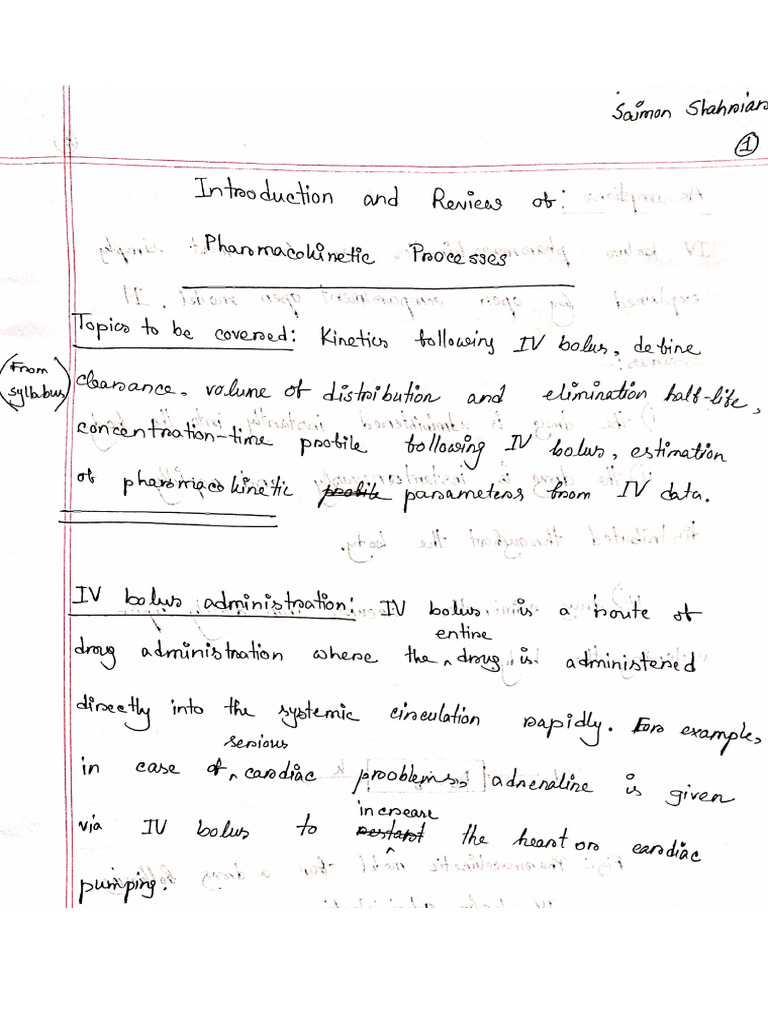 Saimon Shahriar
1
Introduction and Review of:
Pharmacokinetic Processes
Topics to be covered: Kinetics following IV bolus, define
(From syllabus)
clearance, volume of distribution and elimination half-life,
concentration-time profile following IV bolus, estimation
of pharmacokinetic profile parameters from IV data.
IV bolus administration: IV bolus is a route of
entire
drug administration where the ^ drug is administered
directly into the systemic circulation rapidly. For example,
serious
in case of ^ cardiac problems, adrenaline is given
increase
via IV bolus to restart ^ the heart or cardiac
pumping.